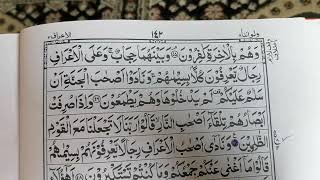 ولو اننا ٨ ١٤٢ الاعراف ٧
وَهُمْ بِالْاٰخِرَةِ كٰفِرُوْنَ وَبَيْنَهُمَا حِجَابٌ وَعَلَى الْاَعْرَافِ
رِجَالٌ يَّعْرِفُوْنَ كُلًّاۢ بِسِيْمٰىهُمْ وَنَادَوْا اَصْحٰبَ الْجَنَّةِ اَنْ
سَلٰمٌ عَلَيْكُمْ لَمْ يَدْخُلُوْهَا وَهُمْ يَطْمَعُوْنَ وَاِذَا صُرِفَتْ
اَبْصَارُهُمْ تِلْقَآءَ اَصْحٰبِ النَّارِ قَالُوْا رَبَّنَا لَا تَجْعَلْنَا مَعَ الْقَوْمِ
الظّٰلِمِيْنَ وَنَادٰٓى اَصْحٰبُ الْاَعْرَافِ رِجَالًا يَّعْرِفُوْنَهُمْ بِسِيْمٰىهُمْ
قَالُوْا مَآ اَغْنٰى عَنْكُمْ جَمْعُكُمْ وَمَا كُنْتُمْ تَسْتَكْبِرُوْنَ اَهٰٓؤُلَآءِ